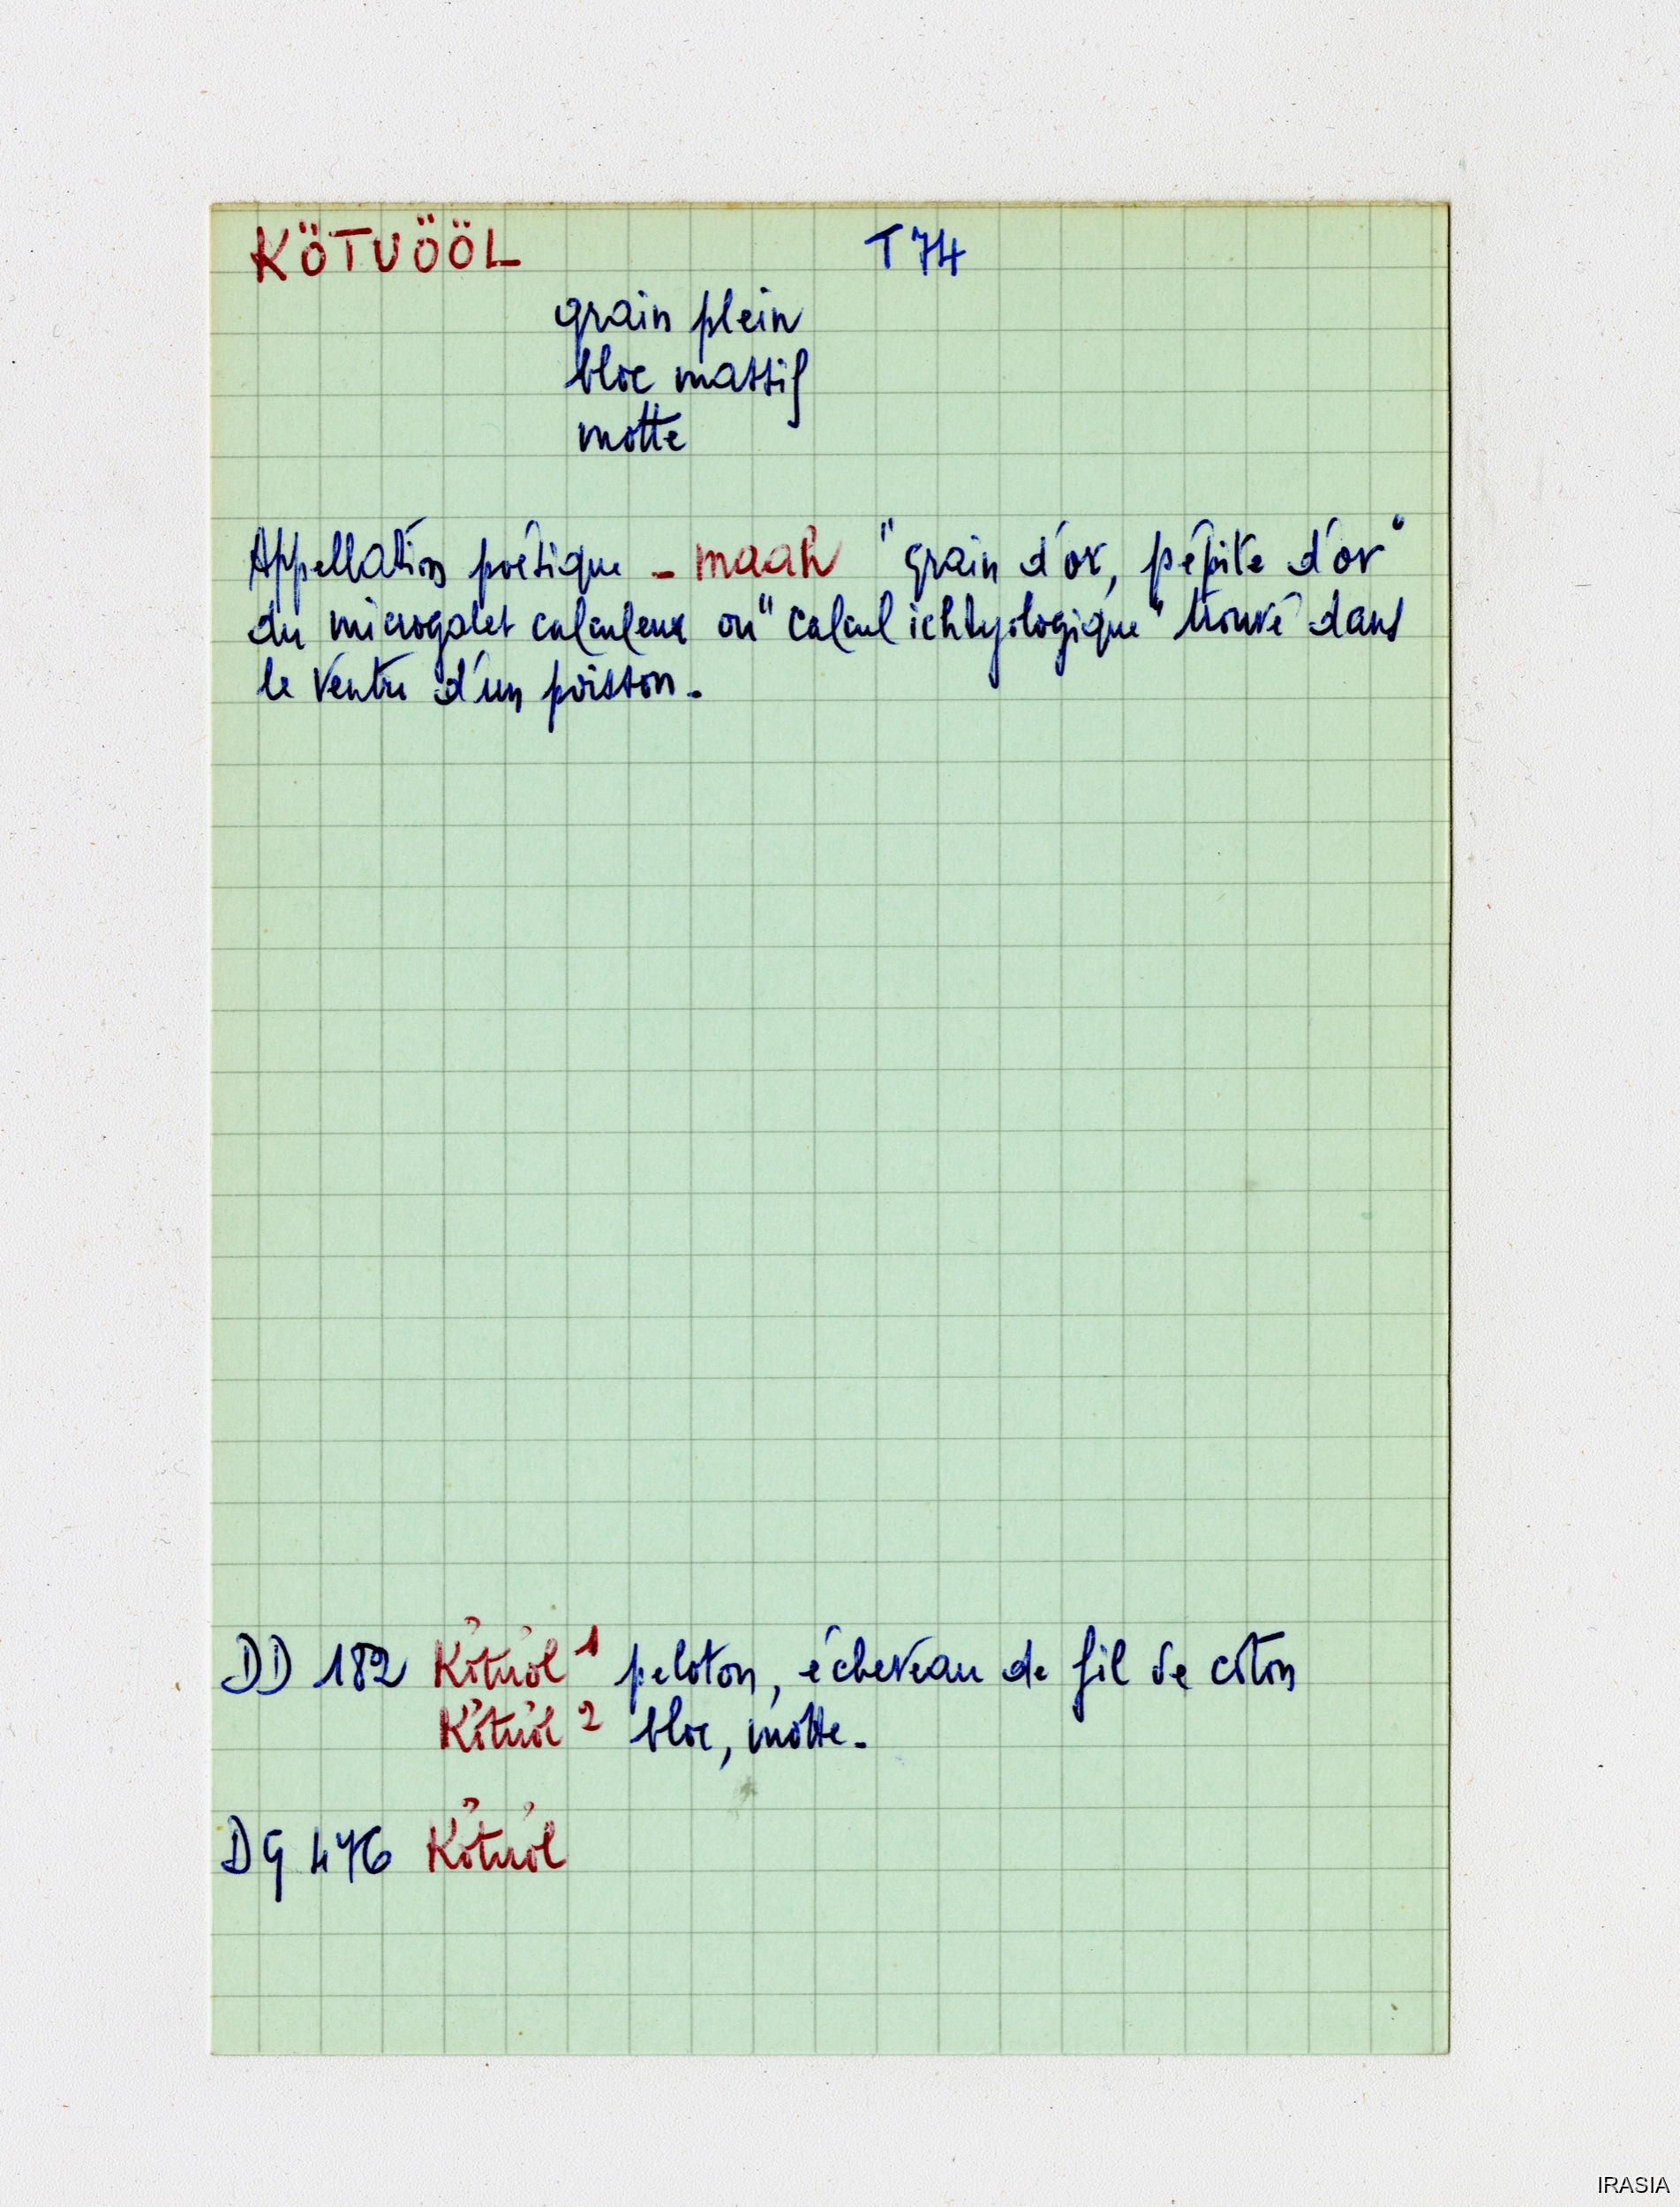 KÖTUÖÖL T74
grain plein
bloc massif
motte
Appellation poétique - maah "grain d'or, pépite d'or"
du microgalet calculeux ou "calcul ichtyologique" trouvé dans
le ventre d'un poisson.
DD 182 Kơ̆tuơ̆l 1 peloton, écheveau de fil de coton
Kơ̆tuơ̆l 2 bloc, motte.
DG 476 Kơ̆tuơ̆l
IRASIA